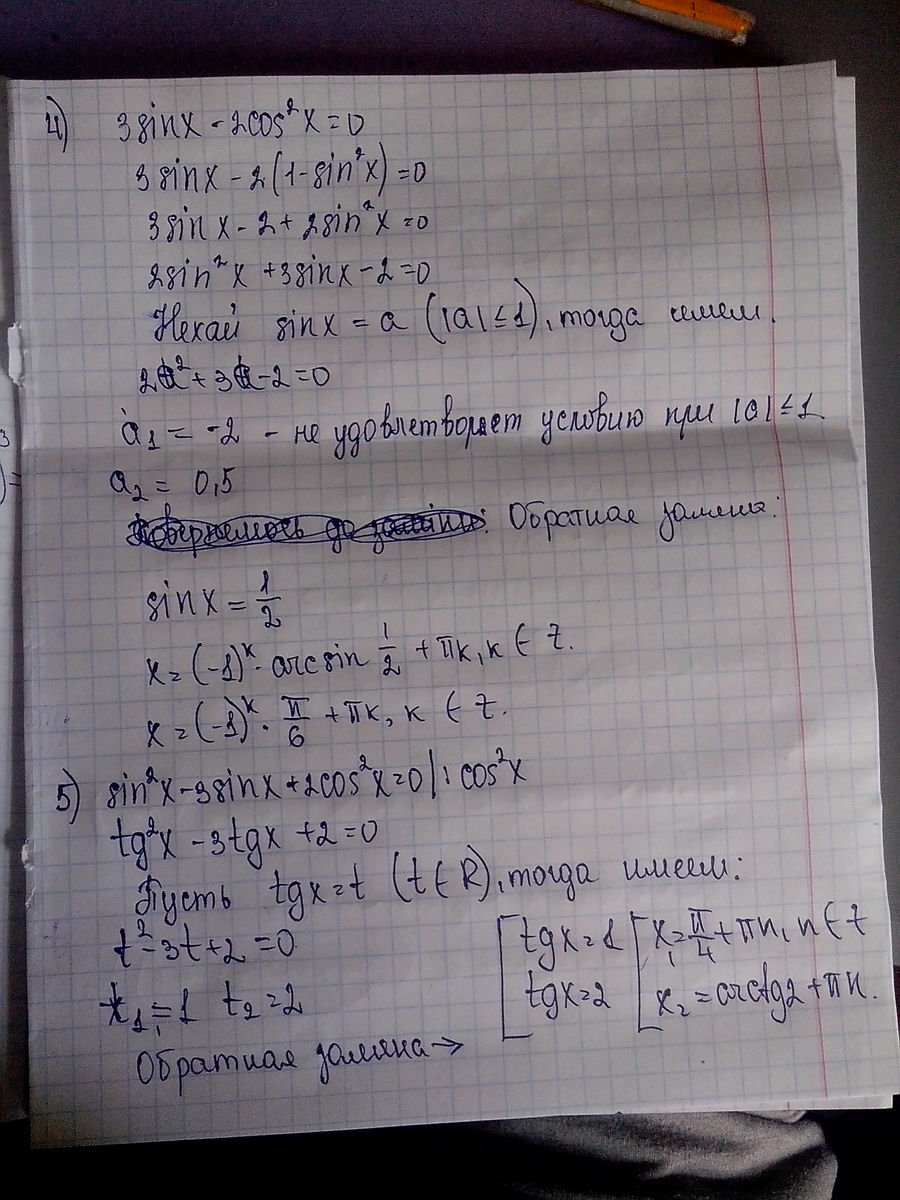 4) 3sinx - 2cos²x = 0
3sinx - 2(1-sin²x) = 0
3sinx - 2 + 2sin²x = 0
2sin²x + 3sinx - 2 = 0
Нехай sinx = a (|a| ≤ 1), тогда имеем
2a² + 3a - 2 = 0
a₁ = -2 - не удовлетворяет условию при |a| ≤ 1
a₂ = 0,5
Обратная замена:
sinx = 1/2
x = (-1)ᵏ · arcsin 1/2 + πк, к ∈ Z.
x = (-1)ᵏ · π/6 + πк, к ∈ Z.
5) sin²x - 3sinx + 2cos²x = 0 | : cos²x
tg²x - 3tgx + 2 = 0
Пусть tgx = t (t ∈ R), тогда имеем:
t² - 3t + 2 = 0
t₁ = 1 t₂ = 2
Обратная замена →
[ tgx = 1 [ x₁ = π/4 + πn, n ∈ Z
tgx = 2 x₂ = arctg2 + πn.